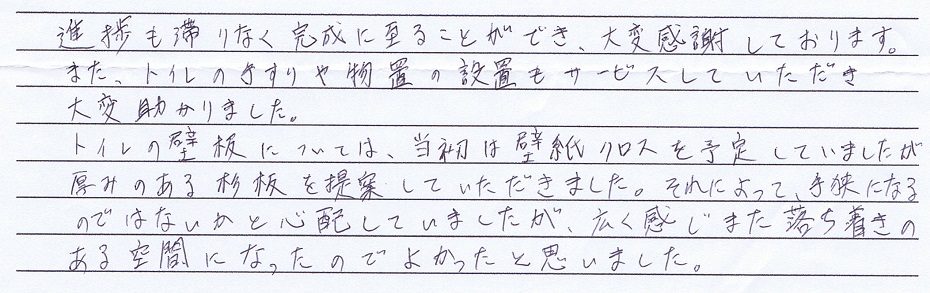 進捗も滞りなく完成に至ることができ、大変感謝しております。
また、トイレの手すりや物置の設置もサービスしていただき
大変助かりました。
トイレの壁板については、当初は壁紙クロスを予定していましたが
厚みのある杉板を提案していただきました。それによって、手狭になる
のではないかと心配していましたが、広く感じまた落ち着きの
ある空間になったのでよかったと思いました。